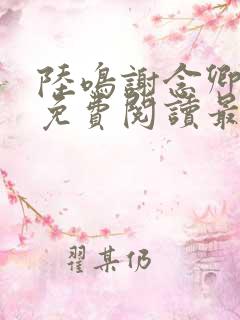 陸鳴謝念卿
免費閱讀最
翟某仍